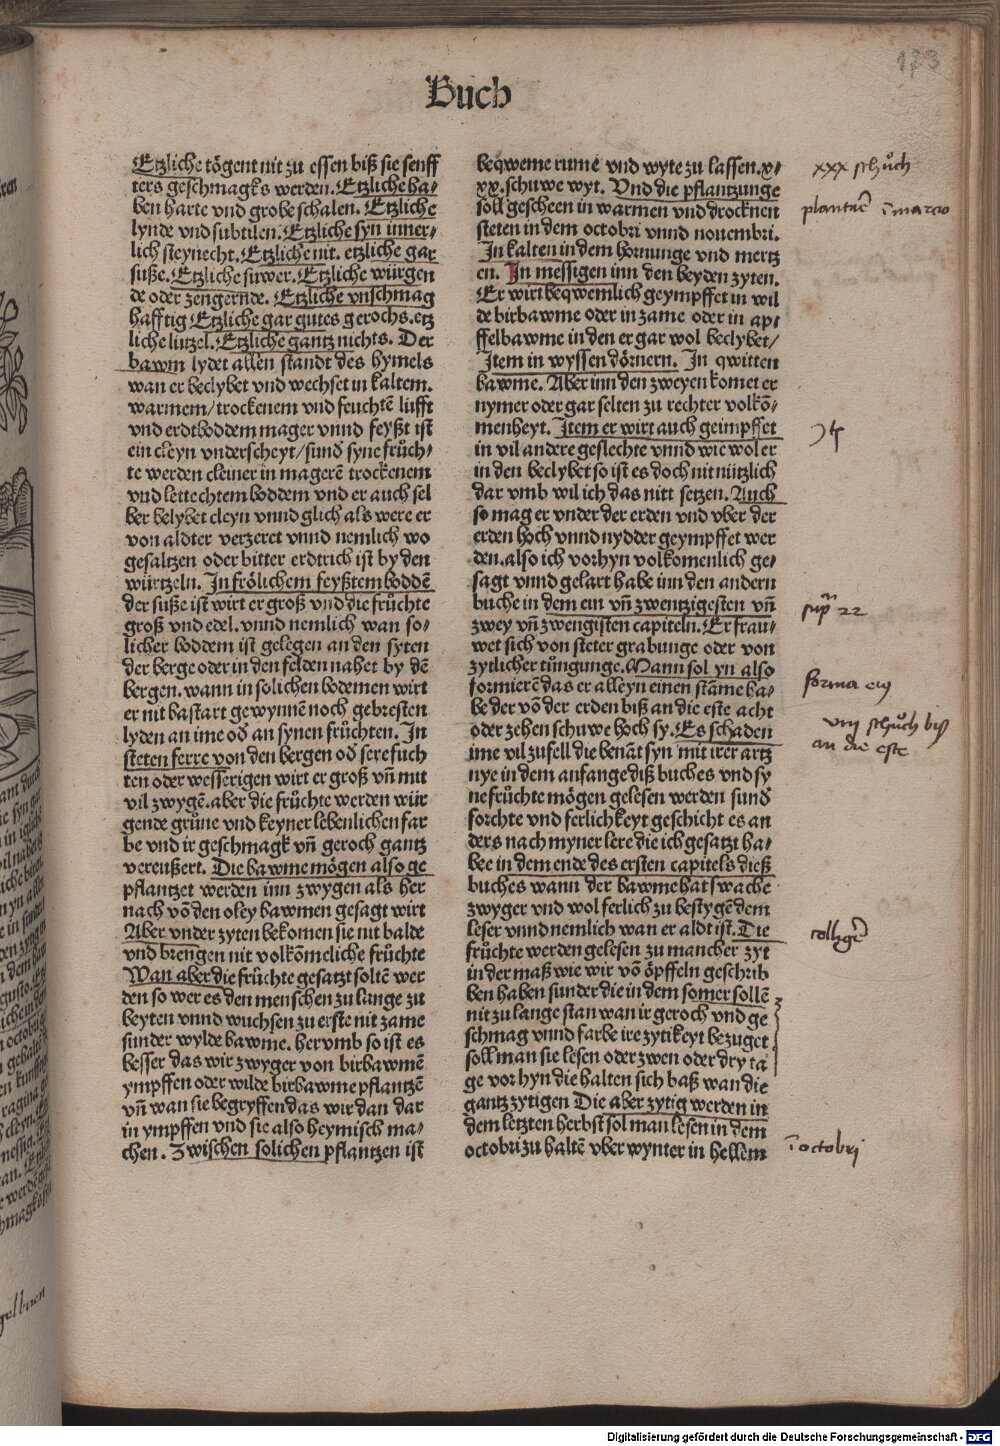 173
Buch
Etzliche tögent nit zu essen biß sie senff
ters geschmagks werden. Etzliche ha⸗
ben harte vnd grobe schalen. Etzliche
lynde vnd subtilen. Etzliche syn inner⸗
lich steynecht. Etzliche nit. etzliche gar
suße. Etzliche suwer. Etzliche würgen
de oder zengernde. Etzliche vnschmag
hafftig Etzliche gar gutes gerochs. etz
liche lutzel. Etzliche gantz nichts. Der
bawm lydet allen standt des hymels
wan er beclybet vnd wechset in kaltem.
warmem/ trockenem vnd feuchtē lufft
vnd erdtboddem mager vnnd feyßt ist
ein cleyn vnderscheyt/ sund̄ syne früch⸗
te werden cleiner in magerē trockenem
vnd lettechtem boddem vnd er auch sel
ber belybet cleyn vnnd glich als were er
von aldter verzeret vnnd nemlich wo
gesaltzen oder bitter erdtrich ist by den
würtzeln. In frölichem feyßtem boddē
der suße ist wirt er groß vnd die früchte
groß vnd edel. vnnd nemlich wan so⸗
licher boddem ist gelegen an den syten
der berge oder in den felden nahet by dē
bergen. wann in solichen bodemen wirt
er nit bastart gewynnē noch gebresten
lyden an ime od̄ an synen früchten. In
steten ferre von den bergen od̄ sere fuch
ten oder wesserigen wirt er groß vn̄ mit
vil zwygē. aber die früchte werden wür
gende grüne vnd keyner lebenlichen far
be vnd ir geschmagk vn̄ geroch gantz
vereußert. Die bawme mögen also ge
pflantzet werden inn zwygen als her
nach vō den oley bawmen gesagt wirt
Aber vnder zyten bekomen sie nit balde
vnd brengen nit volkōmeliche früchte
Wan aber die früchte gesatzt soltē wer
den so wer es den menschen zu lange zu
beyten vnnd wuchsen zu erste nit zame
sunder wylde bawme. her vmb so ist es
besser das wir zwyger von birbawmē
ympffen oder wilde birbawme pflantzē
vn̄ wan sie begryffen das wir dan dar
in ympffen vnd sie also heymisch ma⸗
chen. Zwischen solichen pflantzen ist
beqweme rume vnd wyte zu lassen. x⸗
xx. schuwe wyt. Vnd die pflantzunge
soll gescheen in warmen vnd drocknen
steten in dem octobri vnnd nouembri.
In kalten in dem hornunge vnd mertz
en. In messigen inn den beyden zyten.
Er wirt beqwemlich geympffet in wil
de birbawme oder in zame oder in ap⸗
ffelbawme in den er gar wol beclybet/
Item in wyssen dörnern. In qwitten
bawme. Aber inn den zweyen komet er
nymer oder gar selten zu rechter volkō⸗
menheyt. Item er wirt auch geimpffet
in vil andere geslechte vnnd wie wol er
in den beclybet so ist es doch nit nützlich
dar vmb wil ich das nitt setzen. Auch
so mag er vnder der erden vnd vber der
erden hoch vnnd nydder geympffet wer
den. also ich vorhyn volkomenlich ge⸗
sagt vnnd gelart habe inn den andern
buche in dem ein vn̄ zwentzigesten vn̄
zwey vn̄ zwengisten capiteln. Er frau⸗
wet sich von steter grabunge oder von
zytlicher tüngunge. Mann sol yn also
formierē das er alleyn einen stāme ha⸗
be der vō der erden biß an die este acht
oder zehen schuwe hoch sy. Es schaden
ime vil zufell die benāt syn mit irer artz
nye in dem anfange diß buches vnd sy
ne früchte mögen gelesen werden sund̄
forchte vnd ferlichkeyt geschicht es an
ders nach myner lere die ich gesatzt ha⸗
bee in dem ende des ersten capitels dieß
buches wann der bawme hat swache
zwyger vnd wol ferlich zu bestygē dem
leser vnnd nemlich wan er aldt ist. Die
früchte werden gelesen zu mancher zyt
in der maß wie wir vō öpffeln geschrib
ben haben sunder die in dem somer sollē
nit zu lange stan wan ir geroch vnd ge
schmag vnnd farbe ire zytikeyt bezuget
soll man sie lesen oder zwen oder dry ta
ge vor hyn die halten sich baß wan die
gantz zytigen Die aber zytig werden in
dem letzten herbst sol man lesen in dem
octobri zu haltē vber wynter in hellem
xxx schůch
plantare ī marcio
supra 22
forma eius
viij schůch biß
an die este
colligere
ī octobri
Digitalisierung gefördert durch die Deutsche Forschungsgemeinschaft - DFG